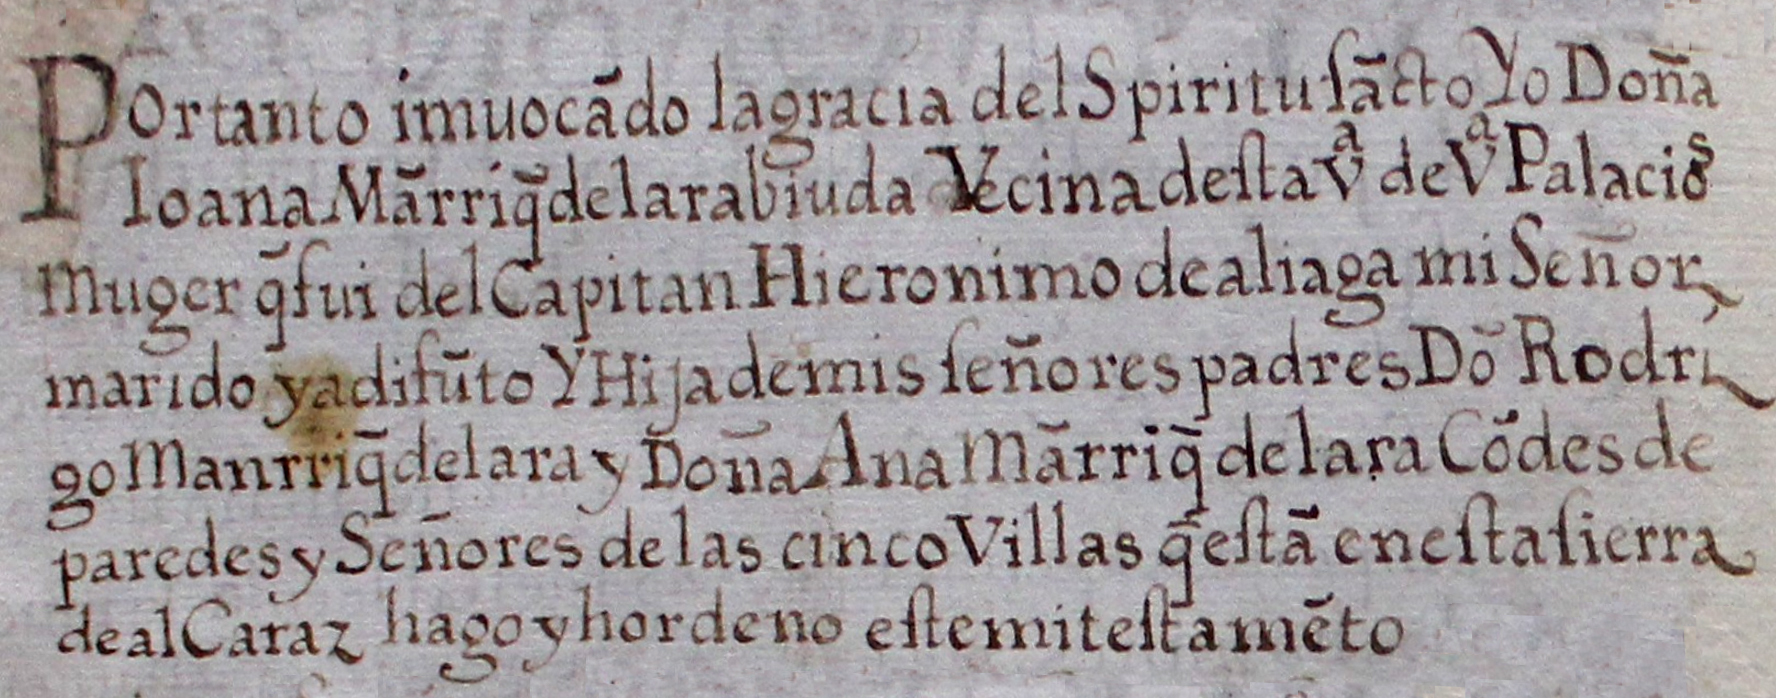 Portanto imuocãdo lagracia del Spiritu ſãcto Yo Doña
Ioana Mãrriq̃ delara biuda Vecina deſta Vᵃ de Vᵃ Palacios
muger q̃ fui del Capitan Hieronimo dealiaga mi Señor
marido ya difũto Y Hija demis ſeñores padres Dõ Rodri
go Manrriq̃ delara y Doña Ana Mãrriq̃ de lara Cõdes de
paredes y Señores de las cinco Villas q̃ eſtã eneſta ſierra
de alCaraz hago y hordeno eſte mi teſtamẽto